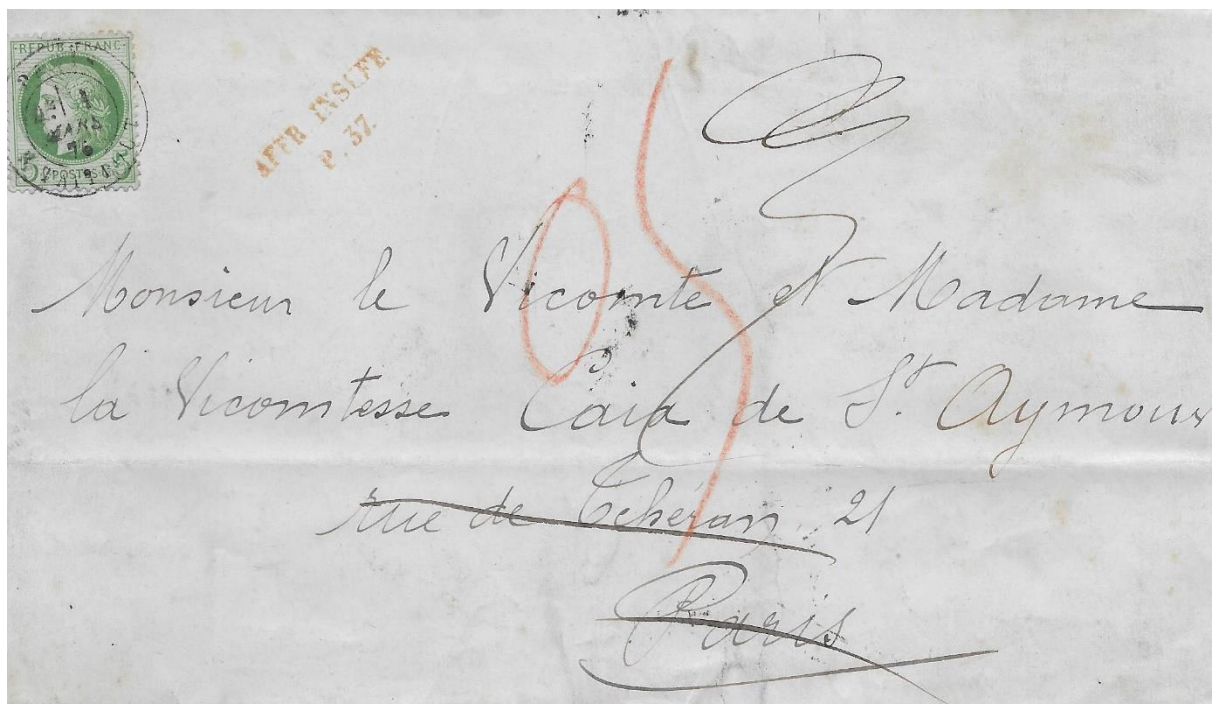 REPUB FRANC
POSTES
MARS
AFFR INSUFF.
P. 37.
Monsieur le Vicomte et Madame
la Vicomtesse Caix de St. Aymour
rue de Téhéran 21
Paris